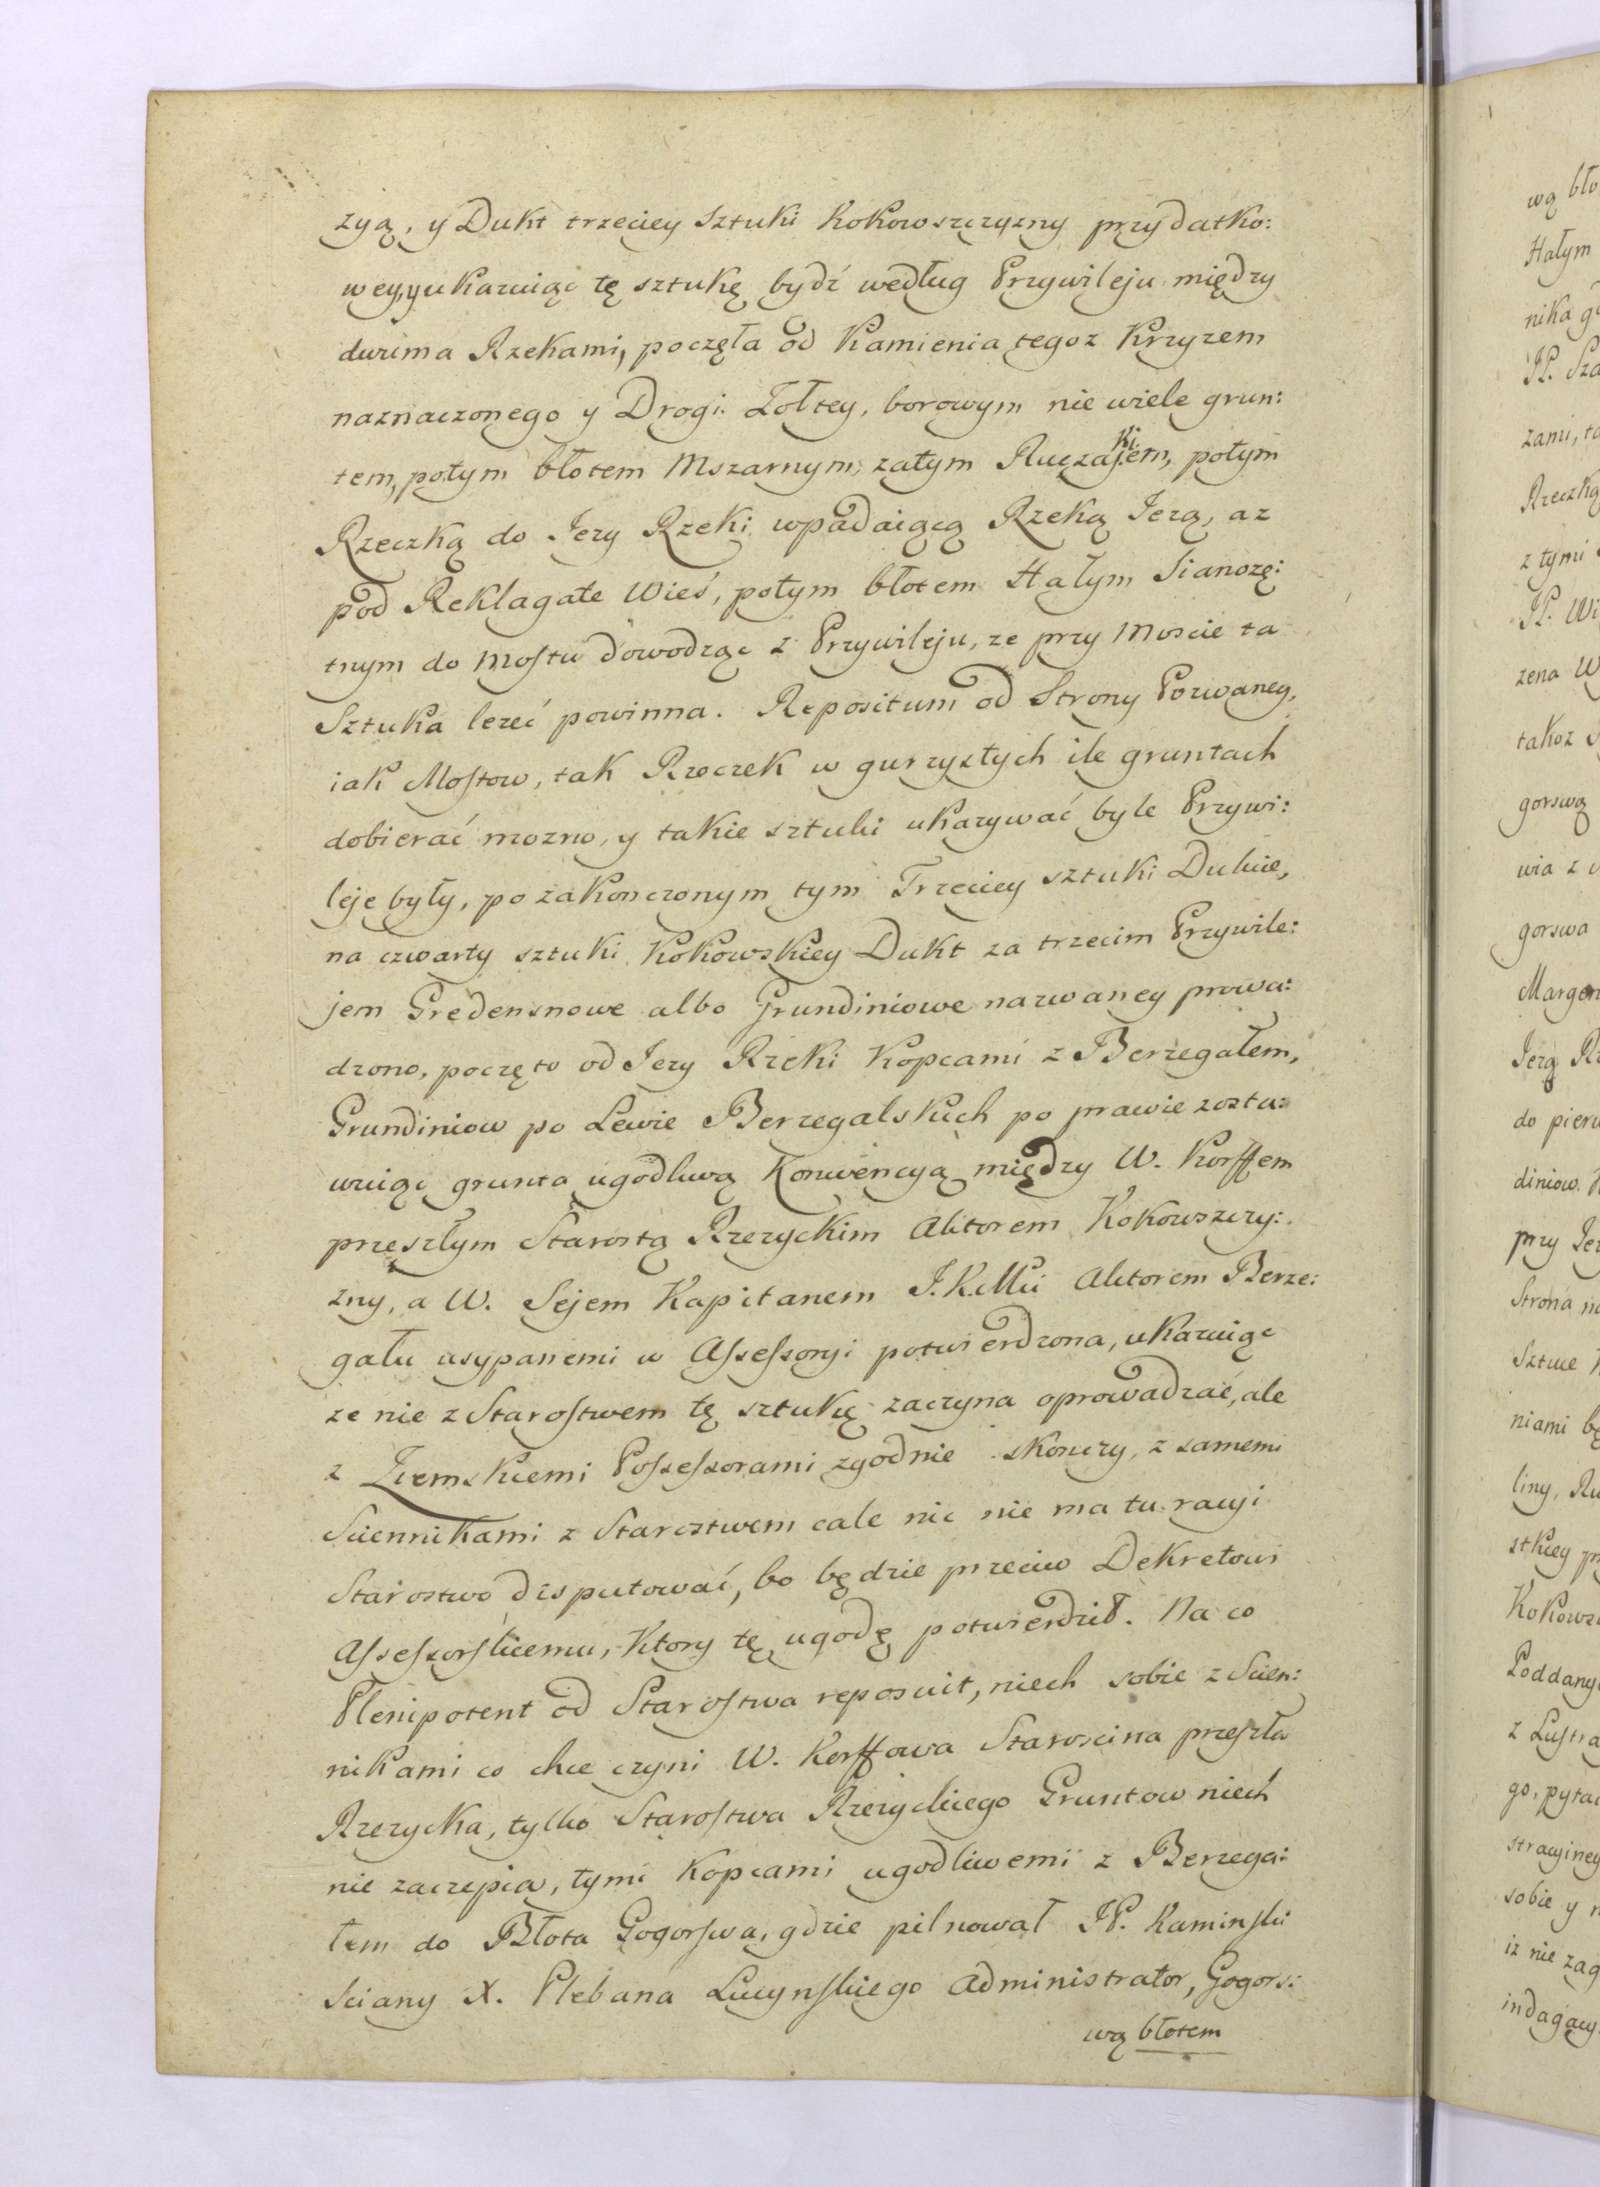 zyą, y Dukt trzeciey Sztuki Kokowszczyzny przydatko:
wey, y ukazuiąc tę sztukę bydź według Przywileju między
dwiema Rzekami, poczęta od Kamienia tegoz Krzyzem
naznaczonego y Drogi Zołtey, borowym nie wiele grun:
tem, potym błotem Mszarnym, zatym Ruczajkiem, potym
Rzeczką do Jezy Rzeki wpadaiącą Rzeką Jezą, az
pod Reklagate Wieś, potym błotem Hałym Sianozę:
tnym do Mostu dowodząc z Przywileju, ze przy Moscie ta
Sztuka lezeć powinna. Repositum od Strony Pozwaney,
iak Mostow, tak Rzeczek w gurzystych ile gruntach
dobierać mozno, y takie sztuki ukazywać byle Przywi:
leje były, po zakonczonym tym Trzeciey sztuki Dukcie,
na czwarty sztuki Kokowskiey Dukt za trzecim Przywile:
jem Gredensnowe albo Grundiniowe nazwaney prowa:
dzono, poczęto od Jezy Rzeki Kopcami z Berzegałem,
Grundiniow po Lewie Berzegalskich po prawie zosta:
wuiąc grunta ugodliwą Konwencyą między W. Korffem
przeszłym Starostą Rzezyckim Aktorem Kokowszczy:
zny, a W. Sejem Kapitanem J.K.Mci Aktorem Berze:
gału usypanemi w Assessoryi potwierdzona, ukazuiąc
ze nie z Starostwem tę sztukę zaczyna oprowadzać, ale
z Ziemskiemi Possessorami zgodnie skonczy, z samemi
Sciennikami z Starostwem cale nic nie ma tu racyi
Starostwo disputować, bo będzie przeciw Dekretowi
Assessorskiemu, Ktory tę ugodę potwierdził. Na co
Plenipotent od Starostwa reposuit, niech sobie z Scien:
nikami co chce czyni W. Korffowa Staroscina przeszła
Rzezycka, tylko Starostwa Rzezyckiego Gruntow niech
nie zaczepia, tymi Kopcami ugodliwemi z Berzega:
łem do Błota Gogorswa, gdzie pilnował JP. Kaminski
Sciany X. Plebana Lucynskiego Administrator, Gogors:
wą błotem
wą bło
Hałym
nika
JP. Sza
zami, ta
Rzeczką
z tymi
JP.
zena W
takoz
gorswą
wia z
gorswa
Margen
Jezą Rz
do pierw
diniow.
przy Jez
Strona
Sztuce
niami bę
liny,
skiey
Kokowsz
Poddany
z Lustra
go, pytac
stracyiney
sobie y
iz nie zag
indagacy